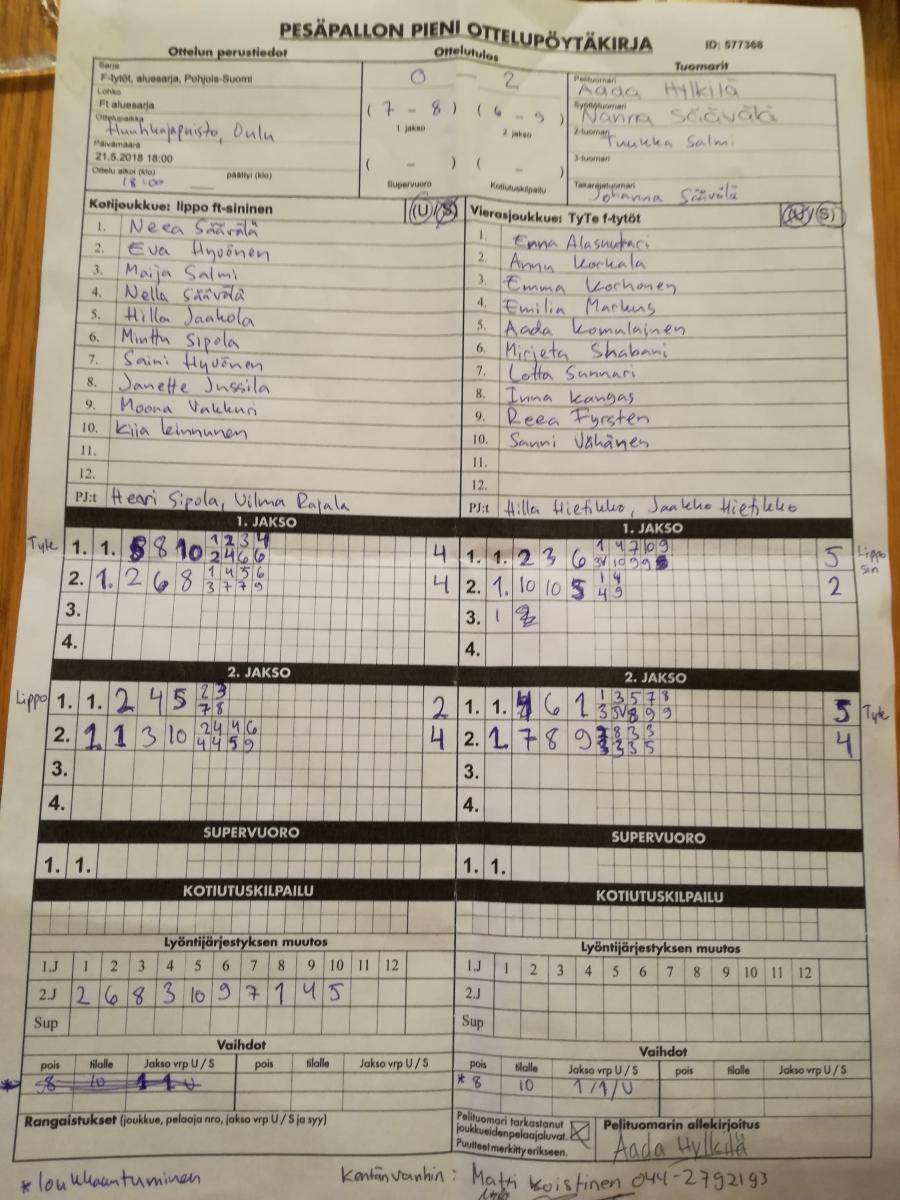 PESÄPALLON PIENI OTTELUPÖYTÄKIRJA
ID: 577368
Ottelun perustiedot
Sarja
F-tytöt, aluesarja, Pohjois-Suomi
Lohko
Ft aluesarja
Ottelupaikka
Huuhkajapuisto, Oulu
Päivämäärä
21.5.2018 18:00
Ottelu alkoi (klo) päättyi (klo)
18:00
Ottelutulos
0 - 2
( 7 - 8 ) ( 6 - 9 )
1. jakso 2. jakso
( - ) ( - )
Supervuoro Kotiutuskilpailu
Tuomarit
Pelituomari
Aada Hylkilä
Syöttötuomari
Nanna Säävälä
2-tuomari
Tuukka Salmi
3-tuomari
Takarajatuomari
Johanna Säävälä
Kotijoukkue: lippo ft-sininen (U/S)
1. Neea Säävälä
2. Eva Hyvönen
3. Maija Salmi
4. Nella Säävälä
5. Hilla Jaakola
6. Minttu Sipola
7. Saini Hyvönen
8. Janette Jussila
9. Moona Vakkuri
10. Kiia Leinnunen
11.
12.
PJ:t Henri Sipola, Vilma Rajala
Vierasjoukkue: TyTe f-tytöt (U/S)
1. Enna Alasuutari
2. Annu Korkala
3. Emma Korhonen
4. Emilia Markus
5. Aada Komulainen
6. Mirjeta Shabani
7. Lotta Sunnari
8. Inna Kangas
9. Reea Fyrsten
10. Sanni Vähänen
11.
12.
PJ:t Hilla Hietikko, Jaakko Hietikko
1. JAKSO
Tyte 1. 1. 5 8 10 1 2 3 4 4
2 4 6 6
2. 1. 2 6 8 1 4 5 6 4
3 7 7 9
3.
4.
1. JAKSO
1. 1. 2 3 6 1 4 7 10 9 5 Lippo sin
2. 1. 10 10 5 1 4 2
4 9
3. 1
4.
2. JAKSO
Lippo 1. 1. 2 4 5 2 3 2
7 8
2. 1 1 3 10 2 4 4 6 4
4 4 5 9
3.
4.
2. JAKSO
1. 1. 4 6 1 1 3 5 7 8 5 Tyte
2. 1. 7 8 9 4
3.
4.
SUPERVUORO
1. 1.
SUPERVUORO
1. 1.
KOTIUTUSKILPAILU
KOTIUTUSKILPAILU
Lyöntijärjestyksen muutos
1.J 1 2 3 4 5 6 7 8 9 10 11 12
2.J 2 6 8 3 10 9 7 1 4 5
Sup
Lyöntijärjestyksen muutos
1.J 1 2 3 4 5 6 7 8 9 10 11 12
2.J
Sup
Vaihdot
pois tilalle Jakso vrp U / S pois tilalle Jakso vrp U / S
* 8 10 1 1 U
Vaihdot
pois tilalle Jakso vrp U / S pois tilalle Jakso vrp U / S
* 8 10 1/1/U
Rangaistukset (joukkue, pelaaja nro, jakso vrp U / S ja syy)
Pelituomari tarkastanut
joukkueidenpelaajaluvat.
Puutteet merkitty erikseen.
Pelituomarin allekirjoitus
Aada Hylkilä
* loukkaantuminen
Kentänvanhin: Matti Koistinen 044-2792193